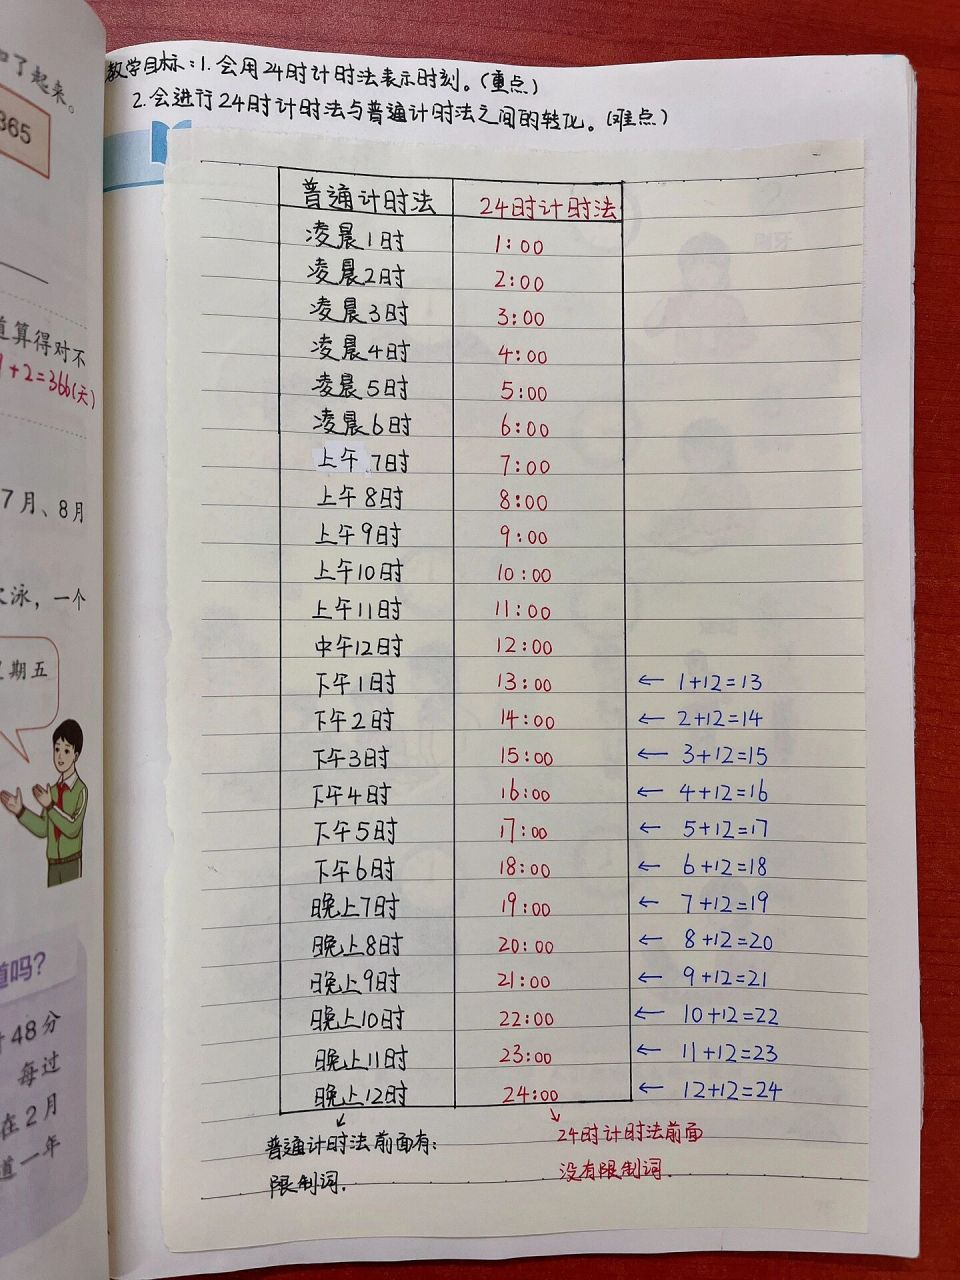 和了起来。
365
道算得对不
1+2=366(天)
7月、8月
泳，一个
期五
道吗?
48分
每过
在2月
道一年
教学目标:1.会用24时计时法表示时刻。(重点)
2.会进行24时计时法与普通计时法之间的转化。(难点)
普通计时法 24时计时法
凌晨1时 1:00
凌晨2时 2:00
凌晨3时 3:00
凌晨4时 4:00
凌晨5时 5:00
凌晨6时 6:00
上午7时 7:00
上午8时 8:00
上午9时 9:00
上午10时 10:00
上午11时 11:00
中午12时 12:00
下午1时 13:00 ← 1+12=13
下午2时 14:00 ← 2+12=14
下午3时 15:00 ← 3+12=15
下午4时 16:00 ← 4+12=16
下午5时 17:00 ← 5+12=17
下午6时 18:00 ← 6+12=18
晚上7时 19:00 ← 7+12=19
晚上8时 20:00 ← 8+12=20
晚上9时 21:00 ← 9+12=21
晚上10时 22:00 ← 10+12=22
晚上11时 23:00 ← 11+12=23
晚上12时 24:00 ← 12+12=24
普通计时法前面有:
限制词.
24时计时法前面
没有限制词.